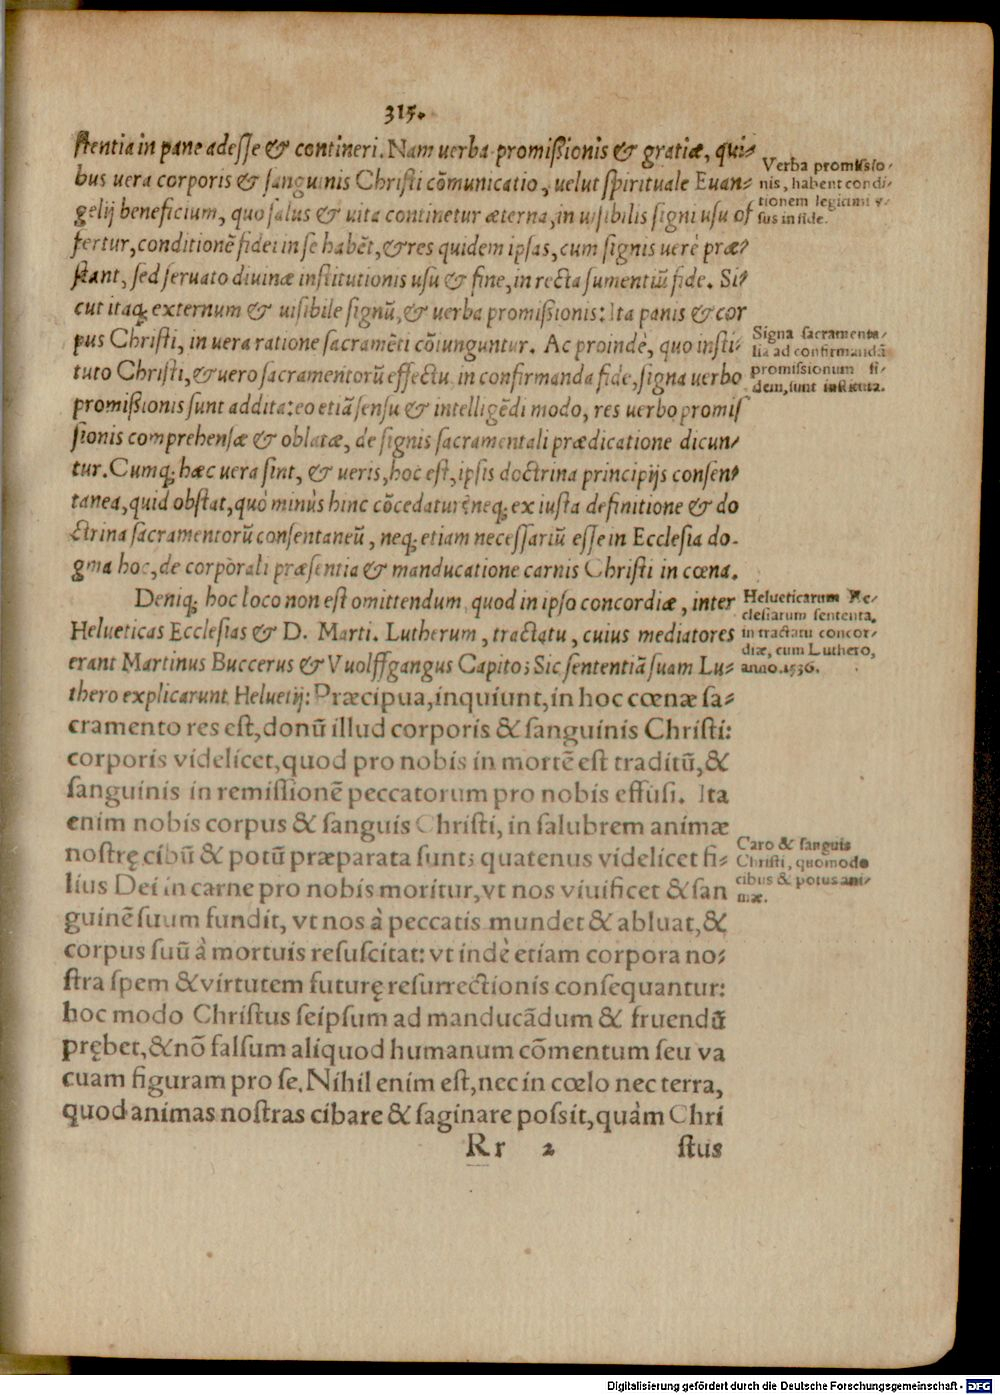 315.
ſtentia in pane adeſſe & contineri. Nam uerba promiſsionis & gratiæ, qui⸗
bus uera corporis & ſanguinis Chriſti cōmunicatio, uelut ſpirituale Euan⸗
gelij beneficium, quo ſalus & uita continetur æterna, in uiſibilis ſigni uſu of
fertur, conditionē fidei in ſe habēt, & res quidem ipſas, cum ſignis uerè præ⸗
ſtant, ſed ſeruato diuinæ inſtitutionis uſu & fine, in recta ſumentiū fide. Si⸗
cut itaq; externum & uiſibile ſignū, & uerba promiſsionis: Ita panis & cor
pus Chriſti, in uera ratione ſacramēti cōiunguntur. Ac proindè, quo inſti⸗
tuto Chriſti, & uero ſacramentorū effectu in confirmanda fide, ſigna uerbo
promiſsionis ſunt addita: eo etiā ſenſu & intelligēdi modo, res uerbo promiſ
ſionis comprehenſæ & oblatæ, de ſignis ſacramentali prædicatione dicun⸗
tur. Cumq; hæc uera ſint, & ueris, hoc eſt, ipſis doctrina principijs conſen⸗
tanea, quid obſtat, quò minùs hinc cōcedatur? neq; ex iuſta definitione & do
ctrina ſacramentorū conſentaneū, neq; etiam neceſſariū eſſe in Eccleſia do-
gma hoc, de corporali præſentia & manducatione carnis Chriſti in cœna.
Deniq; hoc loco non eſt omittendum, quod in ipſo concordiæ, inter
Helueticas Eccleſias & D. Marti. Lutherum, tractatu, cuius mediatores
erant Martinus Buccerus & Vuolffgangus Capito; Sic ſententiā ſuam Lu⸗
thero explicarunt Heluetij: Præcipua, inquiunt, in hoc cœnæ ſa⸗
cramento res eſt, donū illud corporis & ſanguinis Chriſti:
corporis videlicet, quod pro nobis in mortē eſt traditū, &
ſanguinis in remiſſionē peccatorum pro nobis effuſi. Ita
enim nobis corpus & ſanguis Chriſti, in ſalubrem animæ
noſtrę cibū & potū præparata ſunt; quatenus videlicet fi⸗
lius Dei in carne pro nobis moritur, vt nos viuificet & ſan
guinē ſuum fundit, vt nos à peccatis mundet & abluat, &
corpus ſuū à mortuis reſuſcitat: vt indè etiam corpora no⸗
ſtra ſpem & virtutem futurę reſurrectionis conſequantur:
hoc modo Chriſtus ſeipſum ad manducādum & fruendū
prębet, & nō falſum aliquod humanum cōmentum ſeu va
cuam figuram pro ſe. Nihil enim eſt, nec in cœlo nec terra,
quod animas noſtras cibare & ſaginare poſsit, quàm Chri
Rr 2 ſtus
Verba promiſsio⸗
nis, habent condi⸗
tionem legitimi v⸗
ſus in fide.
Signa ſacramenta⸗
lia ad confirmandā
promiſſionum fi⸗
dem, ſunt inſtituta.
Helueticarum Ec⸗
cleſiarum ſententa,
in tractatu concor⸗
diæ, cum Luthero,
anno. 1536.
Caro & ſanguis
Chriſti, quomodo
cibus & potus ani⸗
mæ.
Digitalisierung gefördert durch die Deutsche Forschungsgemeinschaft - DFG